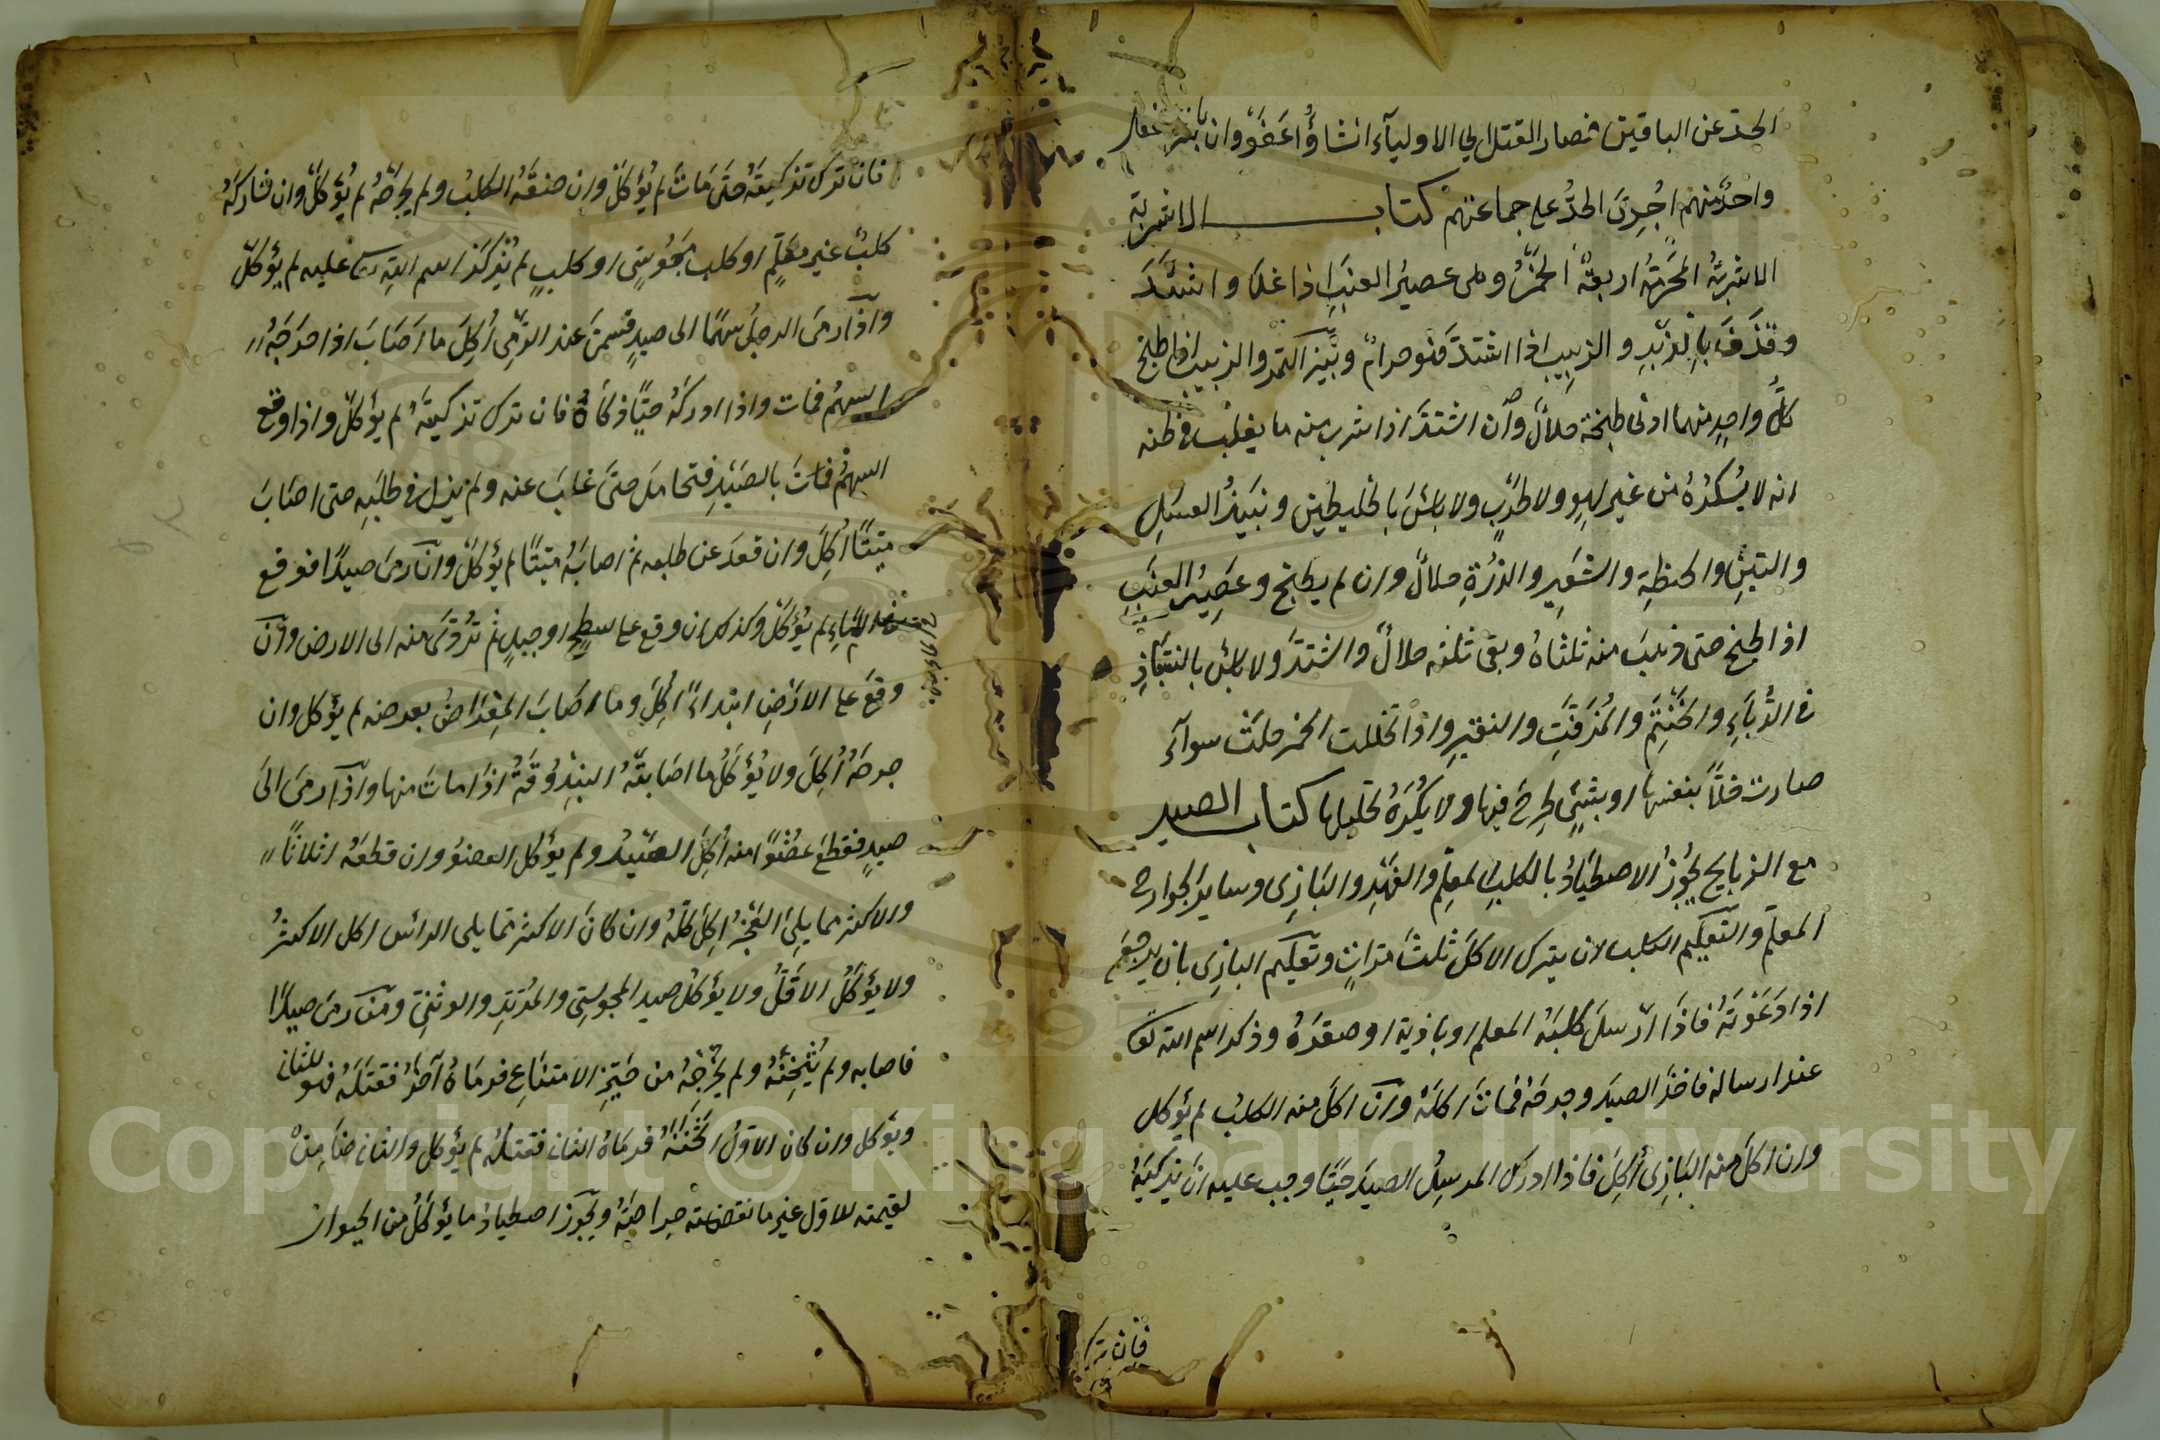 الحدّ عن الباقين فصار القتل الي الاوليآء ان شاؤُا عَفَوْا وان باشر الفعل
واحدٌ منهم اُجْرِىَ الحدُّ على جماعتهم كتاب الاشربة
الاشربَةُ المحَرَّمَةُ اربعةٌ الخَمْرُ وهى عصيرُ العنَبِ اذا غلا واشتَدَّ
وقَذَفَ بالزَبَدِ والزبيبِ اذا اشتدّ فهو حرامٌ ونَبِيْذ التمر والزبيب اذا طبخ
كلُّ واحدٍ منهما ادنى طبخة حلالٌ وان اشتدَّ اذا شرب منه ما يغلب فى ظنه
انه لا يُسْكرُهُ من غير لهوٍ ولا طَرَبٍ ولا باسَ بالخليطين ونبيذُ العسلِ
والتينِ والحنطةِ والشعَيرِ والذُرَةِ حلالٌ وان لم يطبخ وعَصِيْرُ العِنَبِ
اذا طبخ حتى ذهَبَ منه ثلثاهُ وبقى ثلثه حلالٌ وان اشتدَّ ولا باس بالنتباذِ
فى الدُّبَّاءِ والحَنْتَمِ والمُزَفَّتِ والنقيرِ واذا تخللت الخمر حلّتْ سوآء
صارت خلّاً بنفسها او بشئٍ طُرِحَ فيها ولا يُكْرَهُ تخليلها كتاب الصيد
مع الذبايح يجُوْزُ الاصطيَادُ بالكلبِ المعلّمِ والفَهْدِ والبَازِى وساير الجوارح
المعلّم والتعليم الكلب ان يترك الاكلَ ثلثَ مرّاتٍ وتعليم البازِى بان يرجع
اذا دَعَوْتَهُ فاذا ارْسلَ كلْبَهُ المعلم او بازيهَ او صقرَهُ وذكر اسم الله تعالى
عند ارساله فاخذَ الصيدَ وجرحَهُ فماتَ اكلهُ وان اكلَ منه الكلبُ لم يؤكل
وان اكلَ منه البَازِى اُكِلَ فاذا ادركَ المرسِلُ الصيدَ حيًّا وجب عليه ان يذكيَهُ
فان ترك
فان ترك تذكيتَهُ حتى مَاتَ لم يُؤْكلْ وان خنقَهُ الكلبُ ولم يجرحْهُ لم يُؤكلْ وان شاركَهُ
كلبٌ غير معَلّمٍ او كلب مَجُوْسىٍّ او كلبٍ لم يُذْكَرْ اسم اللهِ تعالى عليه لم يؤكلْ
واذا رمىَ الرجلُ سهمًا الى صيدٍ فسمىَ عند الرَّمى اُكِلَ ما اَصَابَ اذا جرَحَهُ
السهمُ فمات واذا ادركهُ حيًّا ذكَّاهُ فان ترك تذكيتَهُ لم يؤكلْ واذا وقع
السهمُ فمات بالصَيْدِ فتحاملَ حتى غابَ عنه ولم يزل فى طلَبِه حتى اصَابَ
ميتًا اُكِلَ وان قعدَ عن طلبه ثم اصابَهُ ميتًا لم يُؤكلْ وان رمىَ صيدًا فوقع
فى الماءِ لم يُؤكلْ وكذلك ان وقع على سطْحٍ او جبلٍ ثم تَرَدّى منه الى الارض وان
وقعَ على الارْضِ ابتداءً اُكِلَ وما اَصَابَ المِعْرَاضُ بعرضه لم يؤكل وان
جرحَهُ اُكِلَ ولا يُؤْكلُ ما اصَابتْهُ البُنْدُقَةُ اذا ماتَ منها واذا رمىَ الىَ
صيدٍ فقطعَ عضْوًا منه اُكِلَ الصَّيْدُ ولم يؤكل العضوُ وان قطعَهُ اثلاثًا
والاكثر مما يلى العَجُزَ اُكِلَ كلّهُ وان كانَ الاكثر مما يلى الراسَ اكل الاكثرُ
ولا يؤكلُ الاقلُّ ولا يؤكلُ صيد المجوسىّ والمُرْتَدِ والوثنِىّ ومَنْ رمىَ صيدًا
فاصابه ولم يُثْخِنْهُ ولم يُخْرِجْهُ من حَيِّزِ الامتناعِ فرمَاهُ آخَرُ فقتلَهُ فهو للثانى
ويؤكل وان كان الاوّلُ اثْخَنَهُ فرماهُ الثانى فقتلَهُ لم يؤكل والثانى ضَامِنٌ
لقيمته للاول غير ما نقصته جراحتُهُ ويجوز اصطيادُ ما يؤكلُ من الحيوان